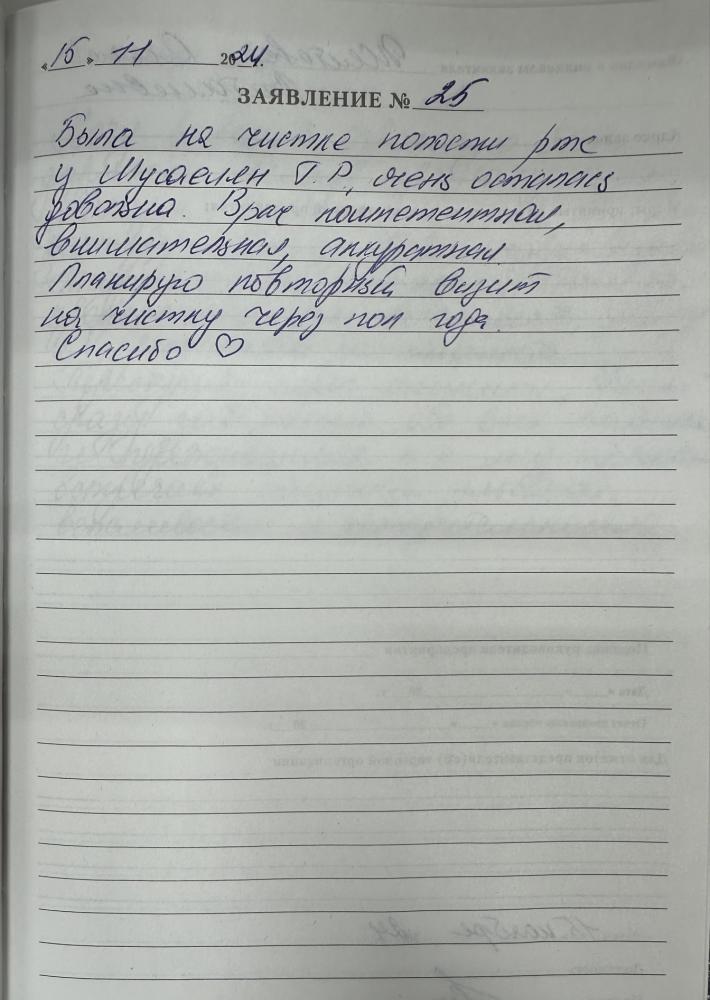 «15» 11 2024г.
ЗАЯВЛЕНИЕ № 25
Была на чистке полости рта
у Мусаелян Г.Р., очень осталась
довольна. Врач компетентная,
внимательная, аккуратная
Планирую повторный визит
на чистку через пол года.
Спасибо ♡